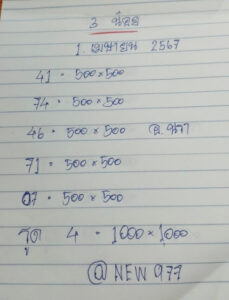 3 น้อย
1. เมษายน 2567
41 - 500×500
74 - 500×500
46 - 500×500
71 - 500×500
07 - 500×500
รูด 4 - 1000×1000
@NEW 977